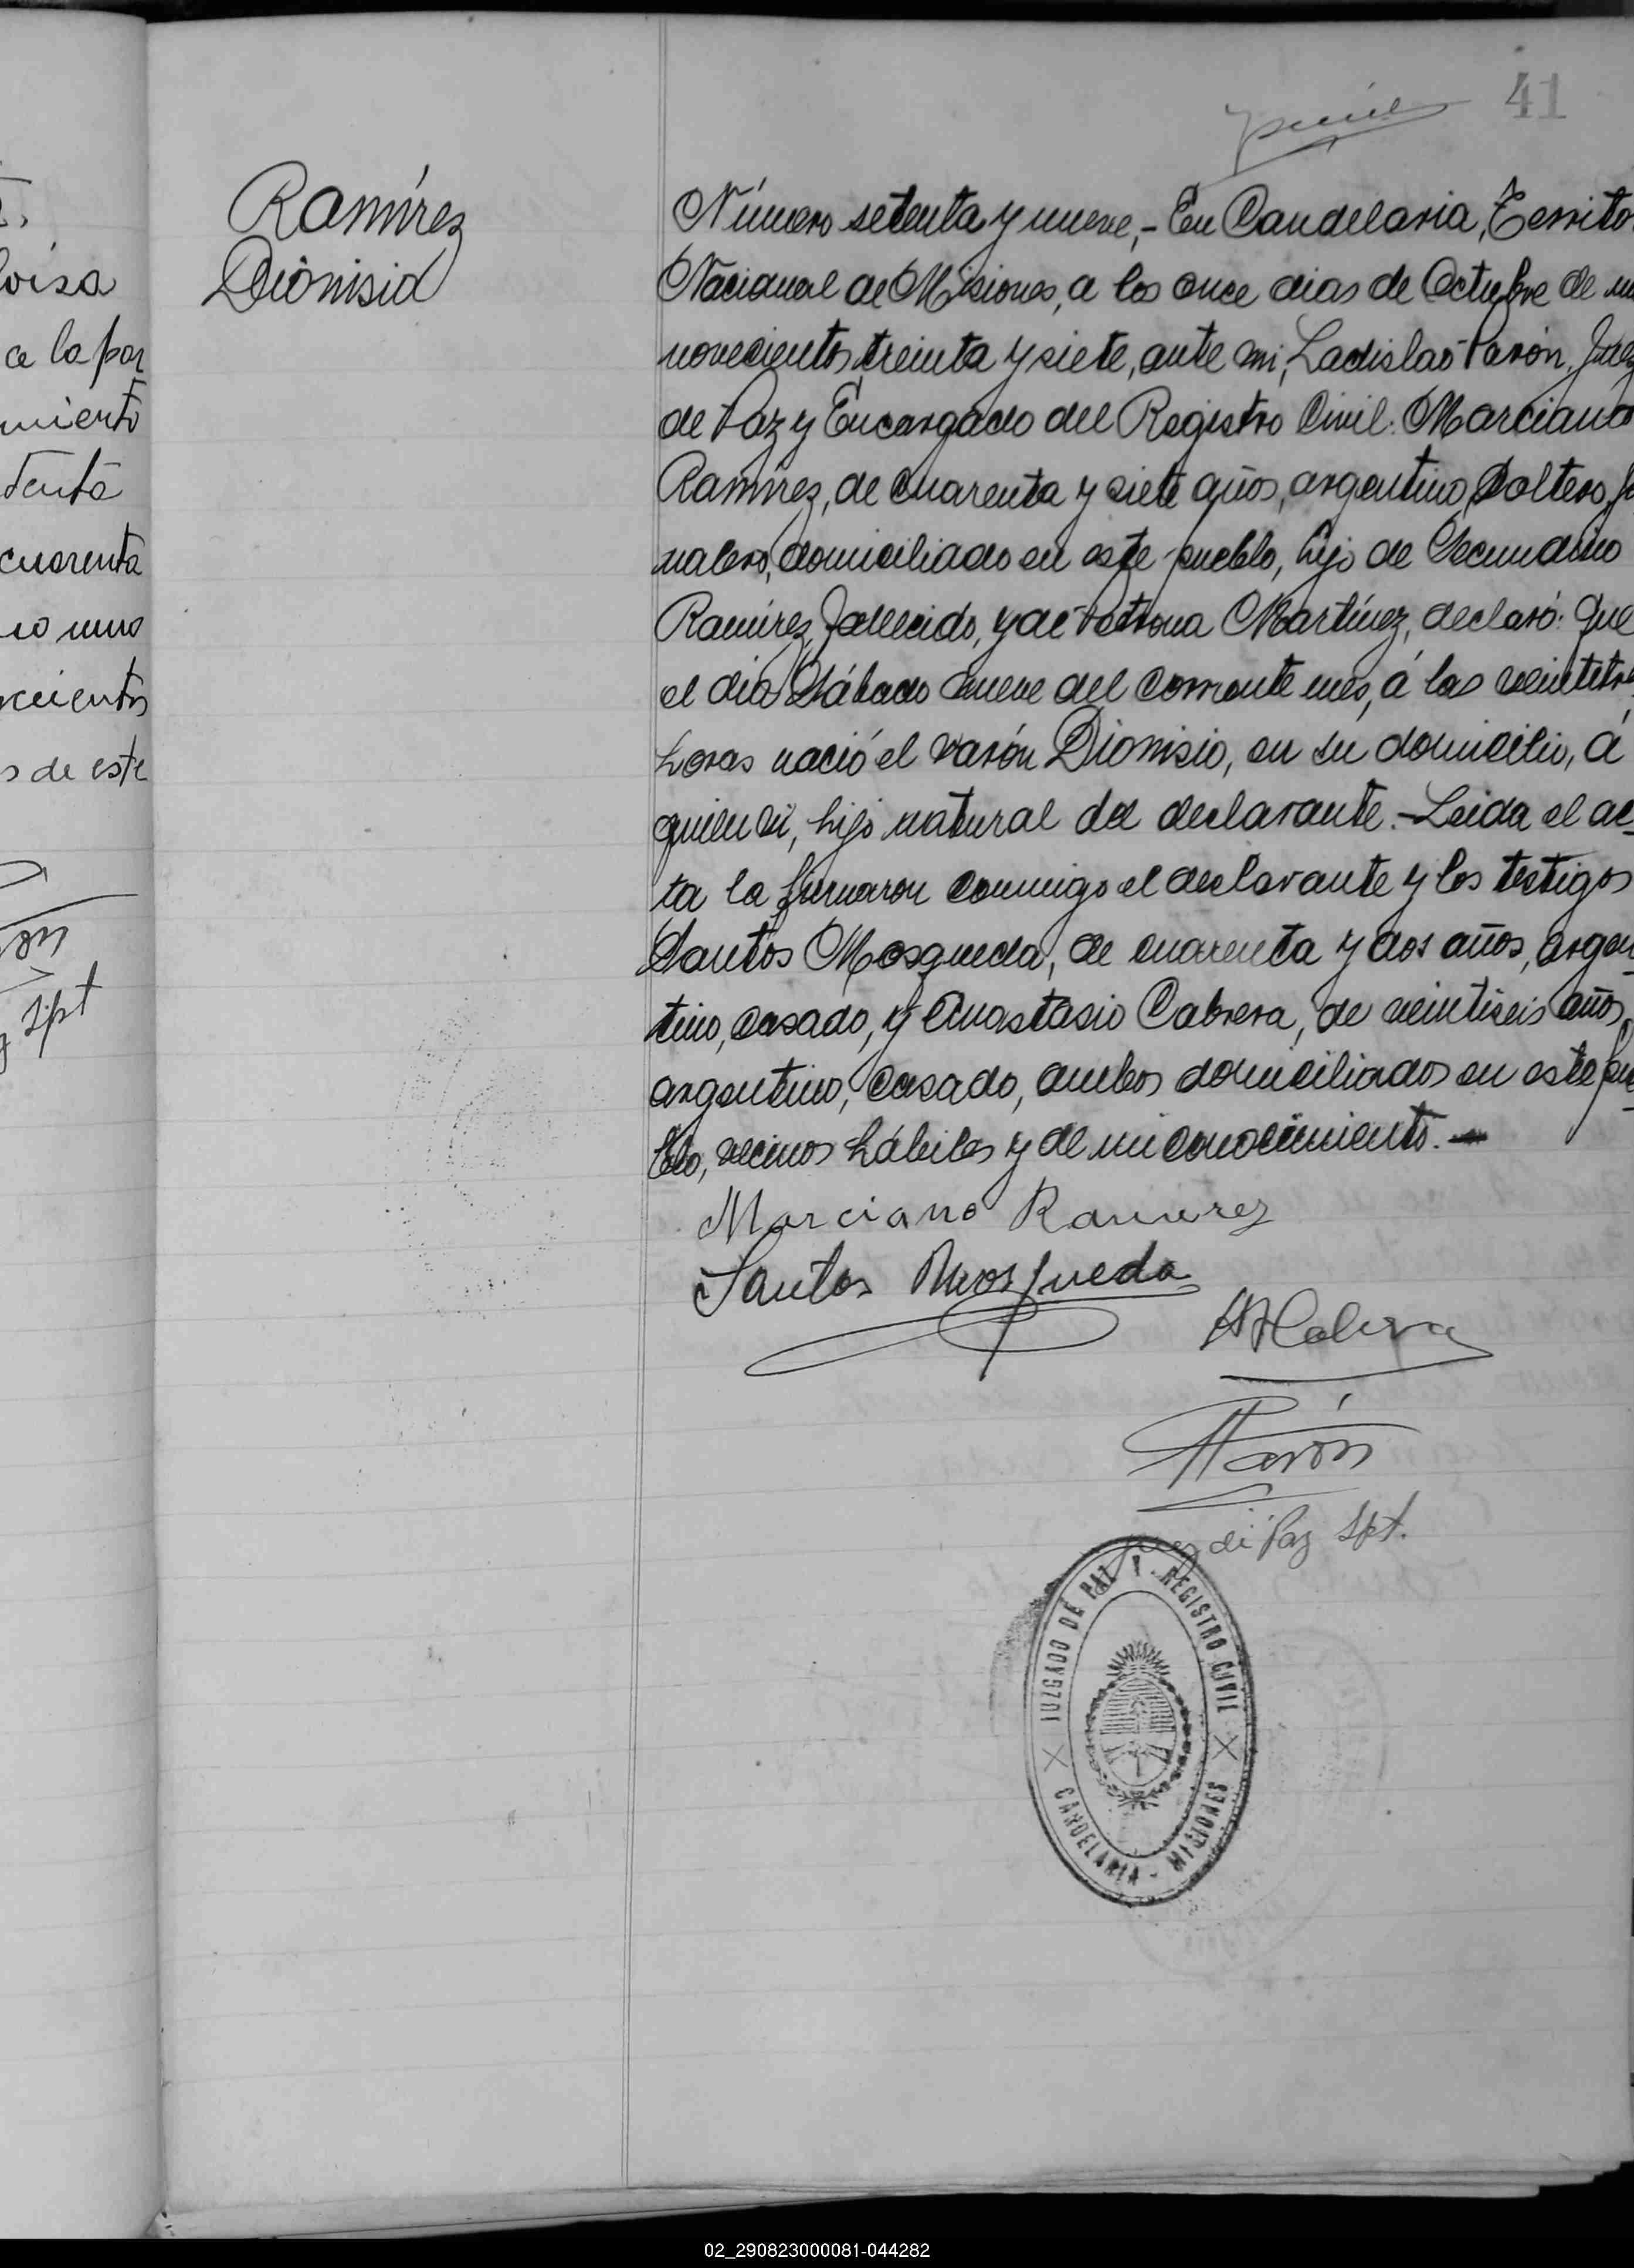 41
Ramírez
Dionisio
Número setenta y nueve,- En Candelaria, Territo
Nacional de Misiones, a los once dias de Octubre de
novecientos treinta y siete, ante mi, Ladislao Pavón, Juez
de Paz y Encargado del Registro Civil: Marciano
Ramírez, de cuarenta y siete años, argentino, soltero, jo
nalero, domiciliado en este pueblo, hijo de Secundino
Ramírez, fallecido, y de Petrona Martínez, declaró: Que
el dia Sábado nueve del corriente mes, á las veintitres
horas nació el varón Dionisio, en su domicilio, á
quien vi, hijo natural del declarante.- Leida el ac-
ta la firmaron conmigo el declarante y los testigos
Santos Mosqueda, de cuarenta y dos años, argen-
tino, casado, y Anastasio Cabrera, de veintiseis años,
argentino, casado, ambos domiciliados en este pue-
blo, vecinos hábiles y de mi conocimiento.-
Marciano Ramirez
Santos Mosqueda
Pavón
Juez de Paz Splt.
JUZGADO DE PAZ Y REGISTRO CIVIL
CANDELARIA - MISIONES
oisa
a la par
miento
tenta
cuarenta
no uno
cientos
s de este
ón
splt
02_290823000081-044282